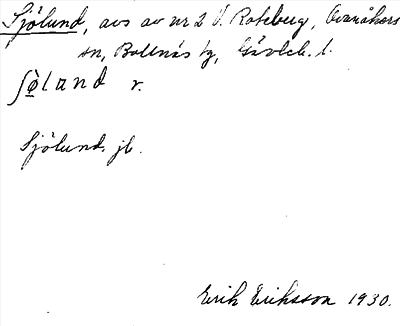 Sjölund, avs av nr 2 V. Roteberg, Ovanåkers
sn, Bollnäs tg, Gävleb. l.
ʃö̀land r.
Sjölund, jb.
Erik Eriksson 1930.